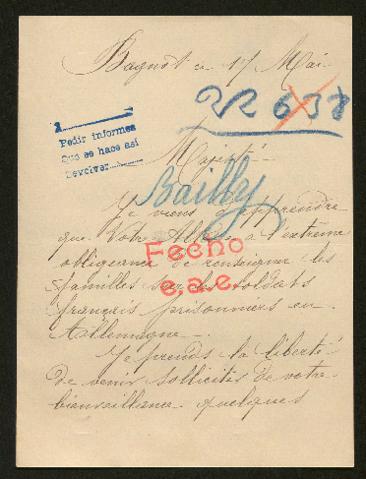 Bagnot ce 17 Mai
22638
Pedir informes
Que se hace así
Devolver
Majesté
Bailly
Je viens d'apprendre
que Votre Altesse a l'extreme
obligeance de renseigner les
familles sur les soldats
français prisonniers en
Allemagne.
Fecho
e.a.e.
Je prends la liberté
de venir solliciter de votre
bienveillance quelques